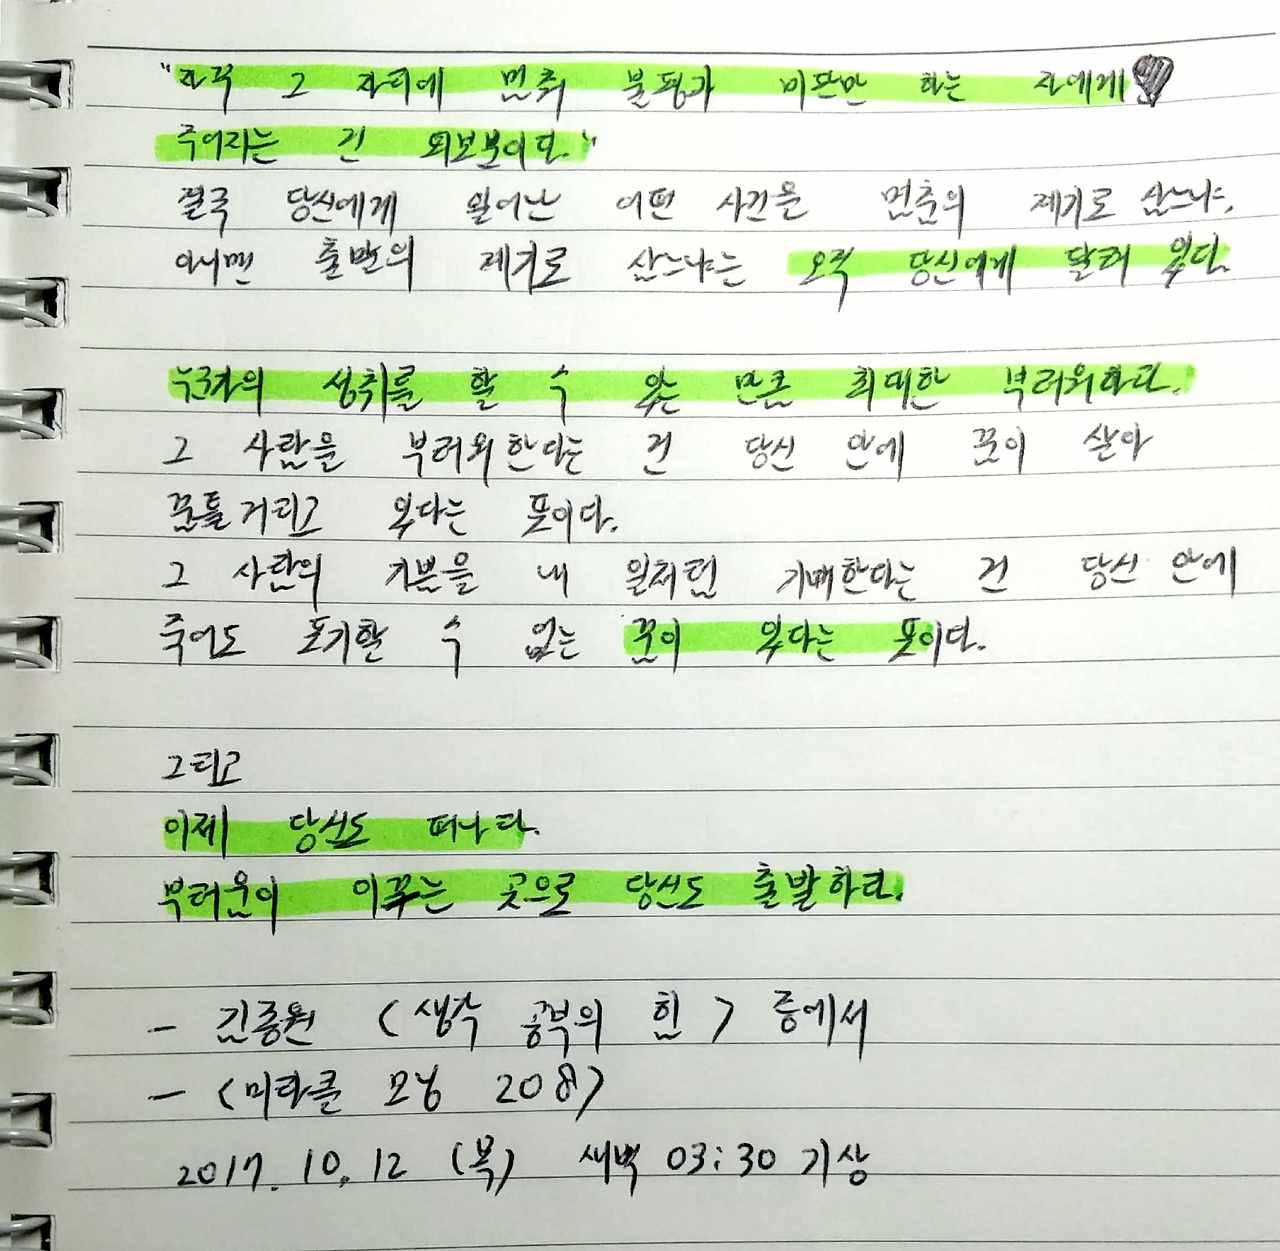 "자꾸 그 자리에 멈춰 불평과 비판만 하는 자에게
주어지는 건 뫼보분이다."
결국 당신에게 일어난 어떤 사건을 멈춤의 계기로 삼느냐,
아니면 출발의 계기로 삼느냐는 오직 당신에게 달려 있다.
누군가의 성취를 할 수 있는 만큼 최대한 부러워하라.
그 사람을 부러워한다는 건 당신 안에 꿈이 살아
꿈틀거리고 있다는 표이다.
그 사람의 기쁨을 내 일처럼 기뻐한다는 건 당신 안에
죽어도 포기할 수 없는 꿈이 있다는 표이다.
그리고
이제 당신도 떠나라.
부러움이 이끄는 곳으로 당신도 출발하라.
- 김종원 <생각 공부의 힘> 중에서
- <미라클 모닝 208>
2017. 10. 12 (목) 새벽 03:30 기상